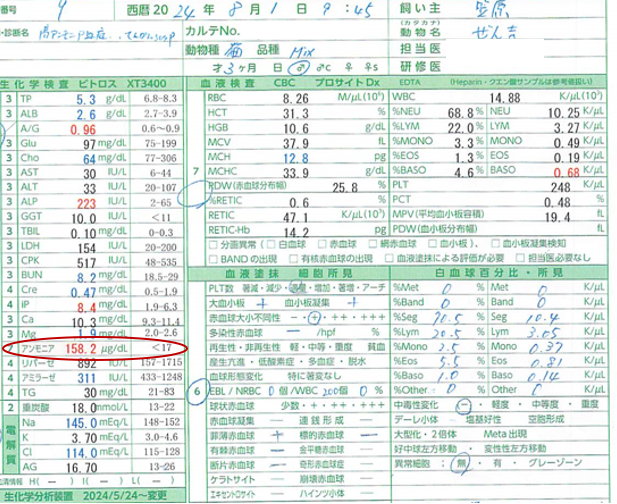 番号 9 西暦20 24年 8月 1日 9:45 飼い主 笠原
・診断名 高アンモニア血症、てんかん カルテNo. 動物名 ぜん吉
動物種 猫 品種 Mix 担当医
才3ヶ月 ♂ ♂c ♀ ♀s 研修医
生化学検査 ビトロス XT3400
3 TP 5.3 g/dL 6.8-8.3
3 ALB 2.6 g/dL 2.7-3.9
A/G 0.96 0.6~0.9
3 Glu 97 mg/dL 75-199
3 Cho 64 mg/dL 77-306
3 AST 30 IU/L 6-44
3 ALT 33 IU/L 20-107
3 ALP 223 IU/L 2-65
3 GGT 10.0 IU/L <11
3 TBIL 0.10 mg/dL 0-0.3
3 LDH 154 IU/L 20-200
3 CPK 517 IU/L 48-535
3 BUN 8.2 mg/dL 18.5-29
4 Cre 0.47 mg/dL 0.5-1.9
4 iP 8.4 mg/dL 1.9-6.3
3 Ca 10.3 mg/dL 9.3-11.4
3 Mg 1.9 mg/dL 2.0-2.6
アンモニア 158.2 μg/dL <17
4 リパーゼ 892 IU/L 157-1715
4 アミラーゼ 311 IU/L 433-1248
4 TG 30 mg/dL 21-83
2 重炭酸 18.0 mmol/L 13-22
電解質
Na 145.0 mEq/L 148-152
K 3.70 mEq/L 3.0-4.6
Cl 114.0 mEq/L 115-128
AG 16.70 13-26
血清情報 H(-) I(-) L(-)
生化学分析装置 2024/5/24～変更
血液検査 CBC プロサイトDx EDTA (Heparin・クエン酸サンプルは参考値扱い)
7
RBC 8.26 M/μL(10⁶)
HCT 31.3 %
HGB 10.6 g/dL
MCV 37.9 fL
MCH 12.8 pg
MCHC 33.9 g/dL
RDW(赤血球分布幅) 25.8 %
%RETIC 0.6 %
RETIC 47.1 K/μL(10³)
RETIC-Hb 14.2 pg
WBC 14.88 K/μL(10³)
%NEU 68.8 % NEU 10.25 K/μL
%LYM 22.0 % LYM 3.27 K/μL
%MONO 3.3 % MONO 0.49 K/μL
%EOS 1.3 % EOS 0.19 K/μL
%BASO 4.6 % BASO 0.68 K/μL
PLT 248 K/μL
PCT 0.48 %
MPV(平均血小板容積) 19.4 fL
PDW(血小板分布幅) fL
□ 分画異常(□ 白血球 □ 赤血球 □ 網赤血球 □ 血小板)、 □ 血小板凝集検知
□ BANDの出現 □ 有核赤血球の出現 □ 血液塗抹による評価が必要 □ 担当医必要なし
血液塗抹 細胞所見
6
PLT数 著減・減少・適量・増加・著増・アーチ
大血小板 + 血小板凝集 +
赤血球大小不同性 - ・+・++・+++
多染性赤血球 - /hpf %
再生性・非再生性 軽・中等・重度 貧血
産生亢進・低酸素症・多血症・脱水
血球形態変化 特に著変なし
EBL / NRBC 0 個/WBC 200個 0 %
球状赤血球 少数・+・++・+++
赤血球凝集 - 連銭形成
菲薄赤血球 + 標的赤血球 -
有棘赤血球 - 金平糖赤血球 -
断片赤血球 - 奇形赤血球症
ケラトサイト - 崩壊赤血球
エキセントロサイト - ハインツ小体
白血球百分比・所見
%Met 0 % Met 0 K/μL
%Band 0 % Band 0 K/μL
%Seg 70.5 % Seg 10.4 K/μL
%Lym 20.5 % Lym 3.05 K/μL
%Mono 2.5 % Mono 0.37 K/μL
%Eos 5.5 % Eos 0.81 K/μL
%Baso 1.0 % Baso 0.14 K/μL
%Other 0 % Other 0 K/μL
中毒性変化 -・軽度・中等度・重度
デーレ小体 塩基好性 空胞形成
大型化・2倍体 Meta出現
好中球左方移動 変性性左方移動
異常細胞: 無・有・グレーゾーン